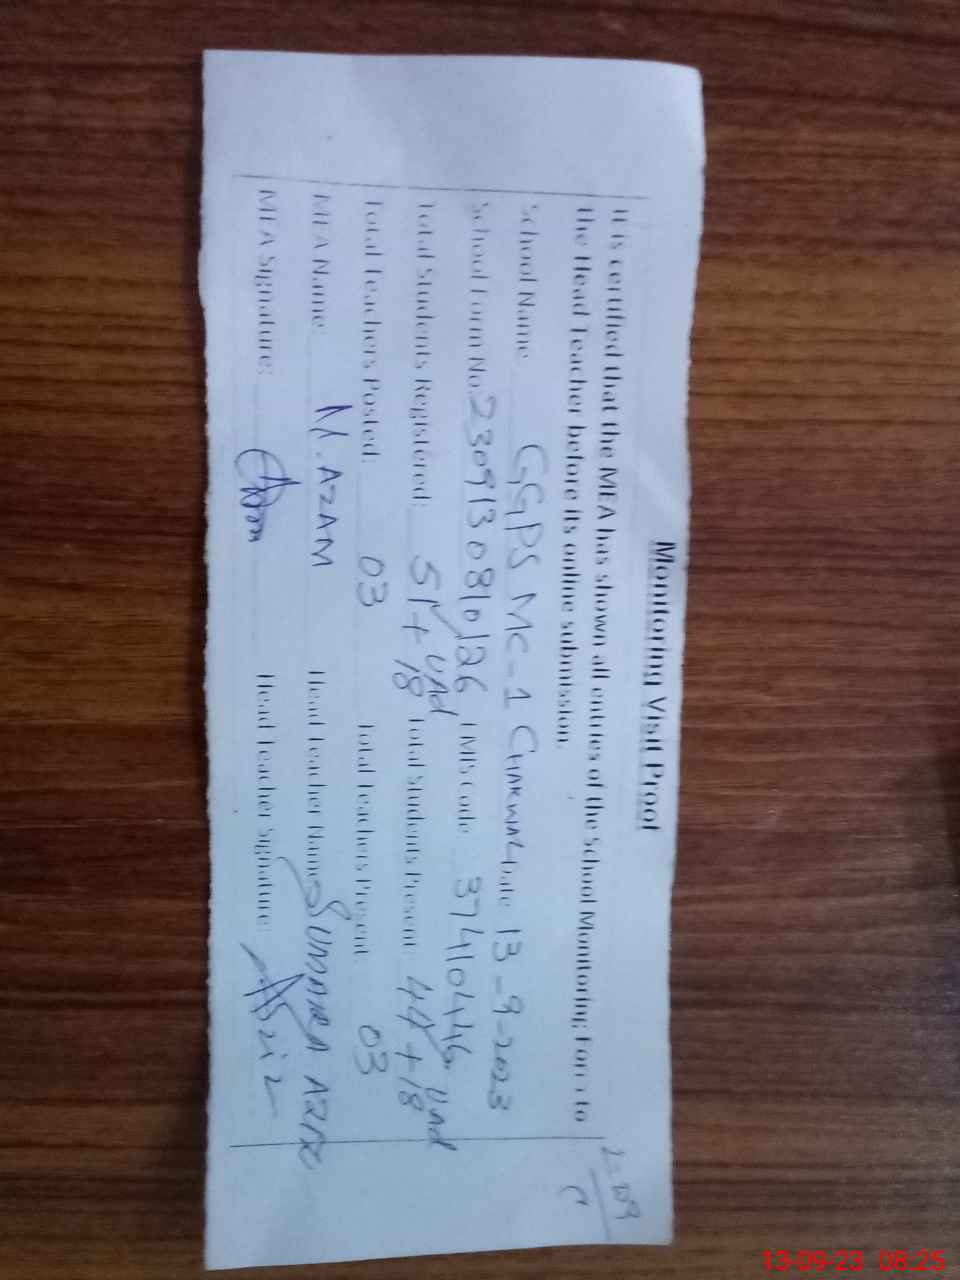 Monitoring Visit Proof
It is certified that the MEA has shown all entries of the School Monitoring Form to
the Head Teacher before its online submission.
School Name GGPS MC-1 CHAKWAL Date 13-9-2023
School Form No. 2309130810126 EMIS Code 37410446
Total Students Registered: 51 + 18 Total Students Present: 44 + 18
Total Teachers Posted: 03 Total Teachers Present 03
MEA Name: M. AZAM Head Teacher Name SUMAIRA AZIZ
MEA Signature: Head Teacher Signature:
13-09-23 08:25